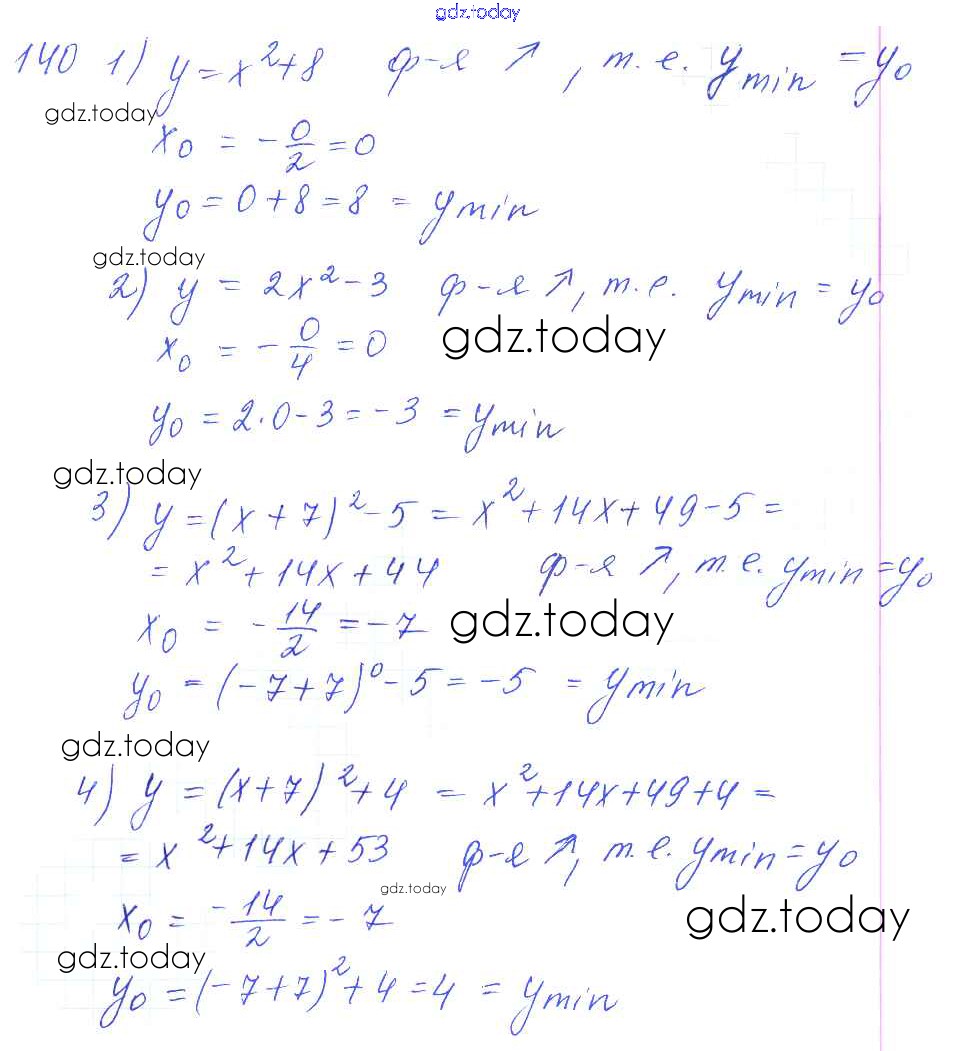 gdz.today
140 1) y = x² + 8 ф-я ↗, т.е. y min = y₀
gdz.today
x₀ = -0/2 = 0
y₀ = 0 + 8 = 8 = y min
gdz.today
2) y = 2x² - 3 ф-я ↗, т.е. y min = y₀
x₀ = -0/4 = 0 gdz.today
y₀ = 2·0 - 3 = -3 = y min
gdz.today
3) y = (x + 7)² - 5 = x² + 14x + 49 - 5 =
= x² + 14x + 44 ф-я ↗, т.е. y min = y₀
x₀ = -14/2 = -7 gdz.today
y₀ = (-7 + 7)⁰ - 5 = -5 = y min
gdz.today
4) y = (x + 7)² + 4 = x² + 14x + 49 + 4 =
= x² + 14x + 53 ф-я ↗, т.е. y min = y₀
gdz.today
x₀ = -14/2 = -7 gdz.today
gdz.today
y₀ = (-7 + 7)² + 4 = 4 = y min